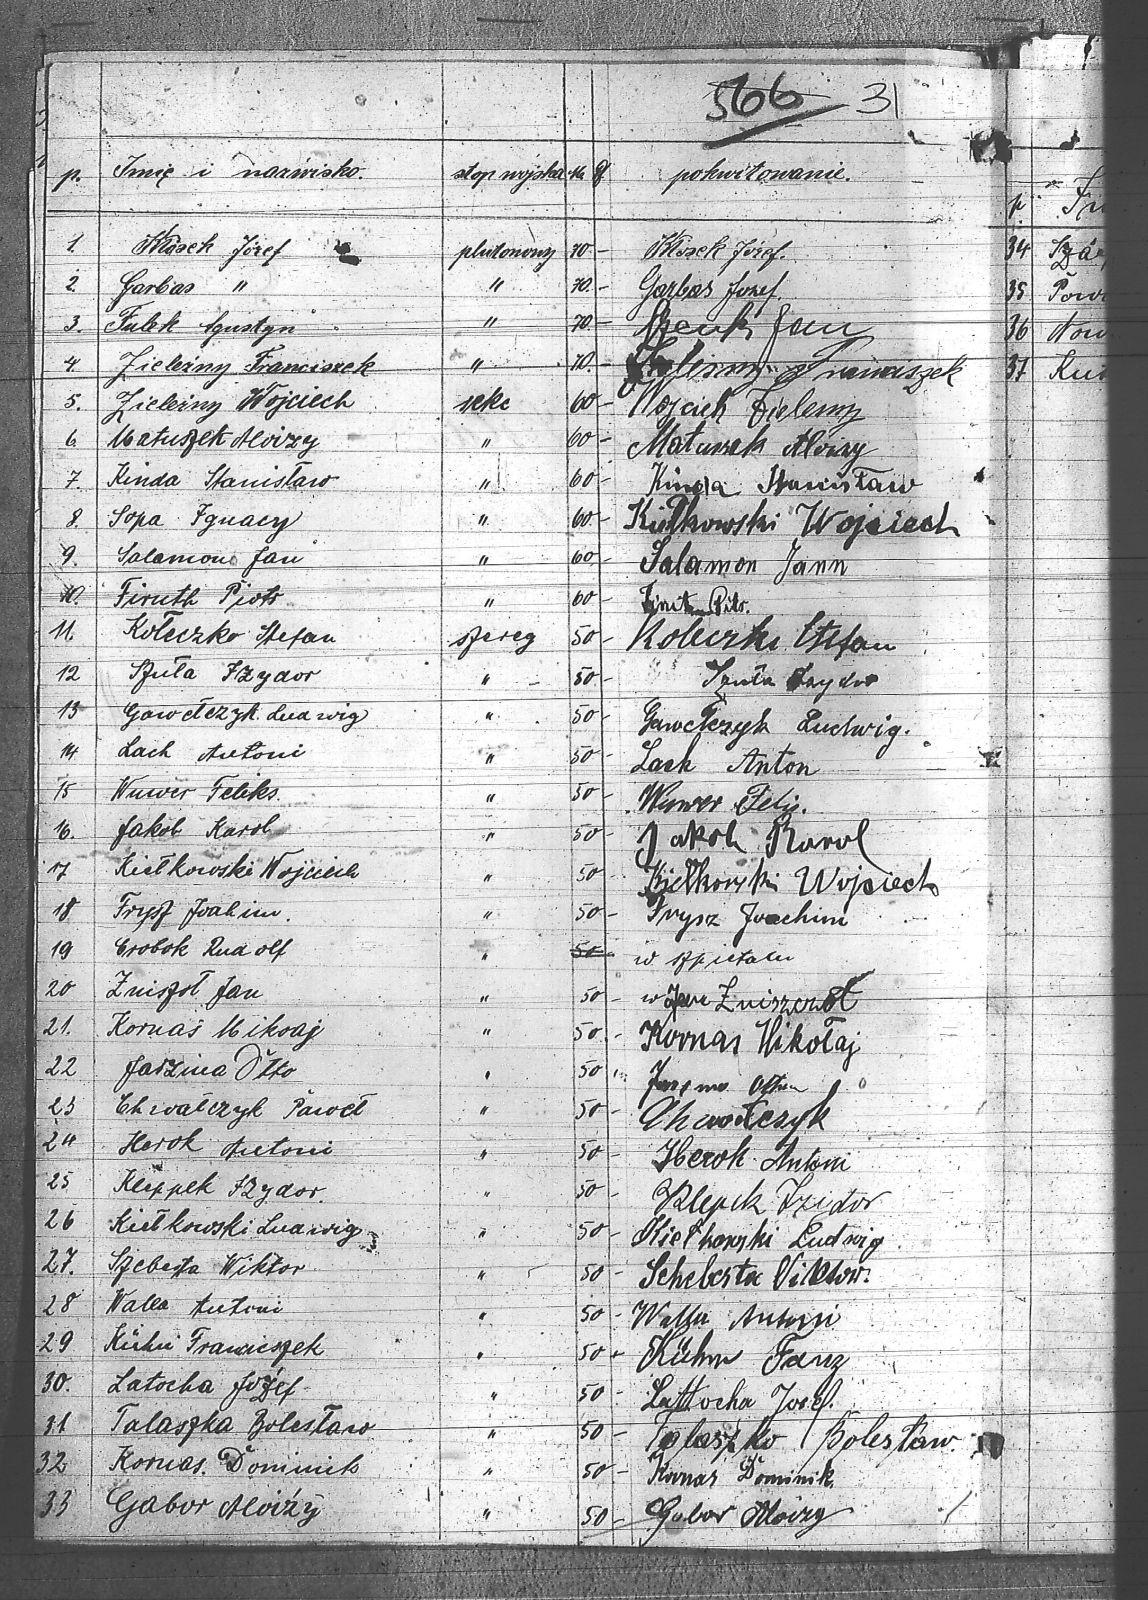 566 31
p. Imię i nazwisko. stop wojska M f. pokwitowanie.
1 Kłosek Józef plutonowy 70.- Kłosek Józef.
2. Garbas " " 70.- Garbas Jozef.
3. Fulek Agustyn " 70.- Jan
4. Zieleźny Franciszek " 70.- Franciszek
5. Zieleźny Wojciech sekc 60- Wojciech Zielezny
6. Matuszek Aloizy " 60- Matuszek Aloizy
7. Kinda Stanisław " 60- Kinda Stanisław
8. Sopa Ignacy " 60- Kiełkowski Wojciech
9. Salamon Jan " 60- Salamon Jann
10. Firuth Piotr " 60-
11. Kołeczko Stefan szereg 50- Koleczki Stefan
12 Szuła Izydor " 50- Szuła Izydor
13 Gawełczyk Ludwig " 50- Gawełczyk Ludwig.
14 Lach Antoni " 50- Lach Anton
15 Wuwer Feliks. " 50- Wuwer Felix.
16. Jakob Karol " 50- Jakob Karol
17 Kiełkowski Wojciech " 50- Kiełkowski Wojciech
18 Frysz Joahim. " 50- Frysz Joachim
19 Erobok Rudolf " 50- w szpitalu
20 Zniszoł Jan " 50- Jan Zniszczoł
21. Kornaś Mikoaj " 50- Kornas Mikołaj
22 Jarzina Otto " 50
23 Chwałczyk Paweł " 50- Chwołczyk
24 Herok Antoni " 50- Herok Antoni
25 Kleppek Izydor. " 50- Klepek Izidor
26 Kiełkowski Ludwig " 50- Kiełkowski Ludwig
27. Szebesta Wiktor " 50- Schebesta Viktor.
28 Walla Antoni " 50- Walla Antoni
29 Kühn Franciszek " 50- Kühn Franz
30. Latocha Józef " 50- Lattocha Josef.
31 Talaszka Bolesław " 50- Talaszko Bolesław.
32 Kornas. Dominik " 50- Kornaś Dominik.
33 Gabor Aloizy " 50- Gabor Aloizy
p
34
35
36
37